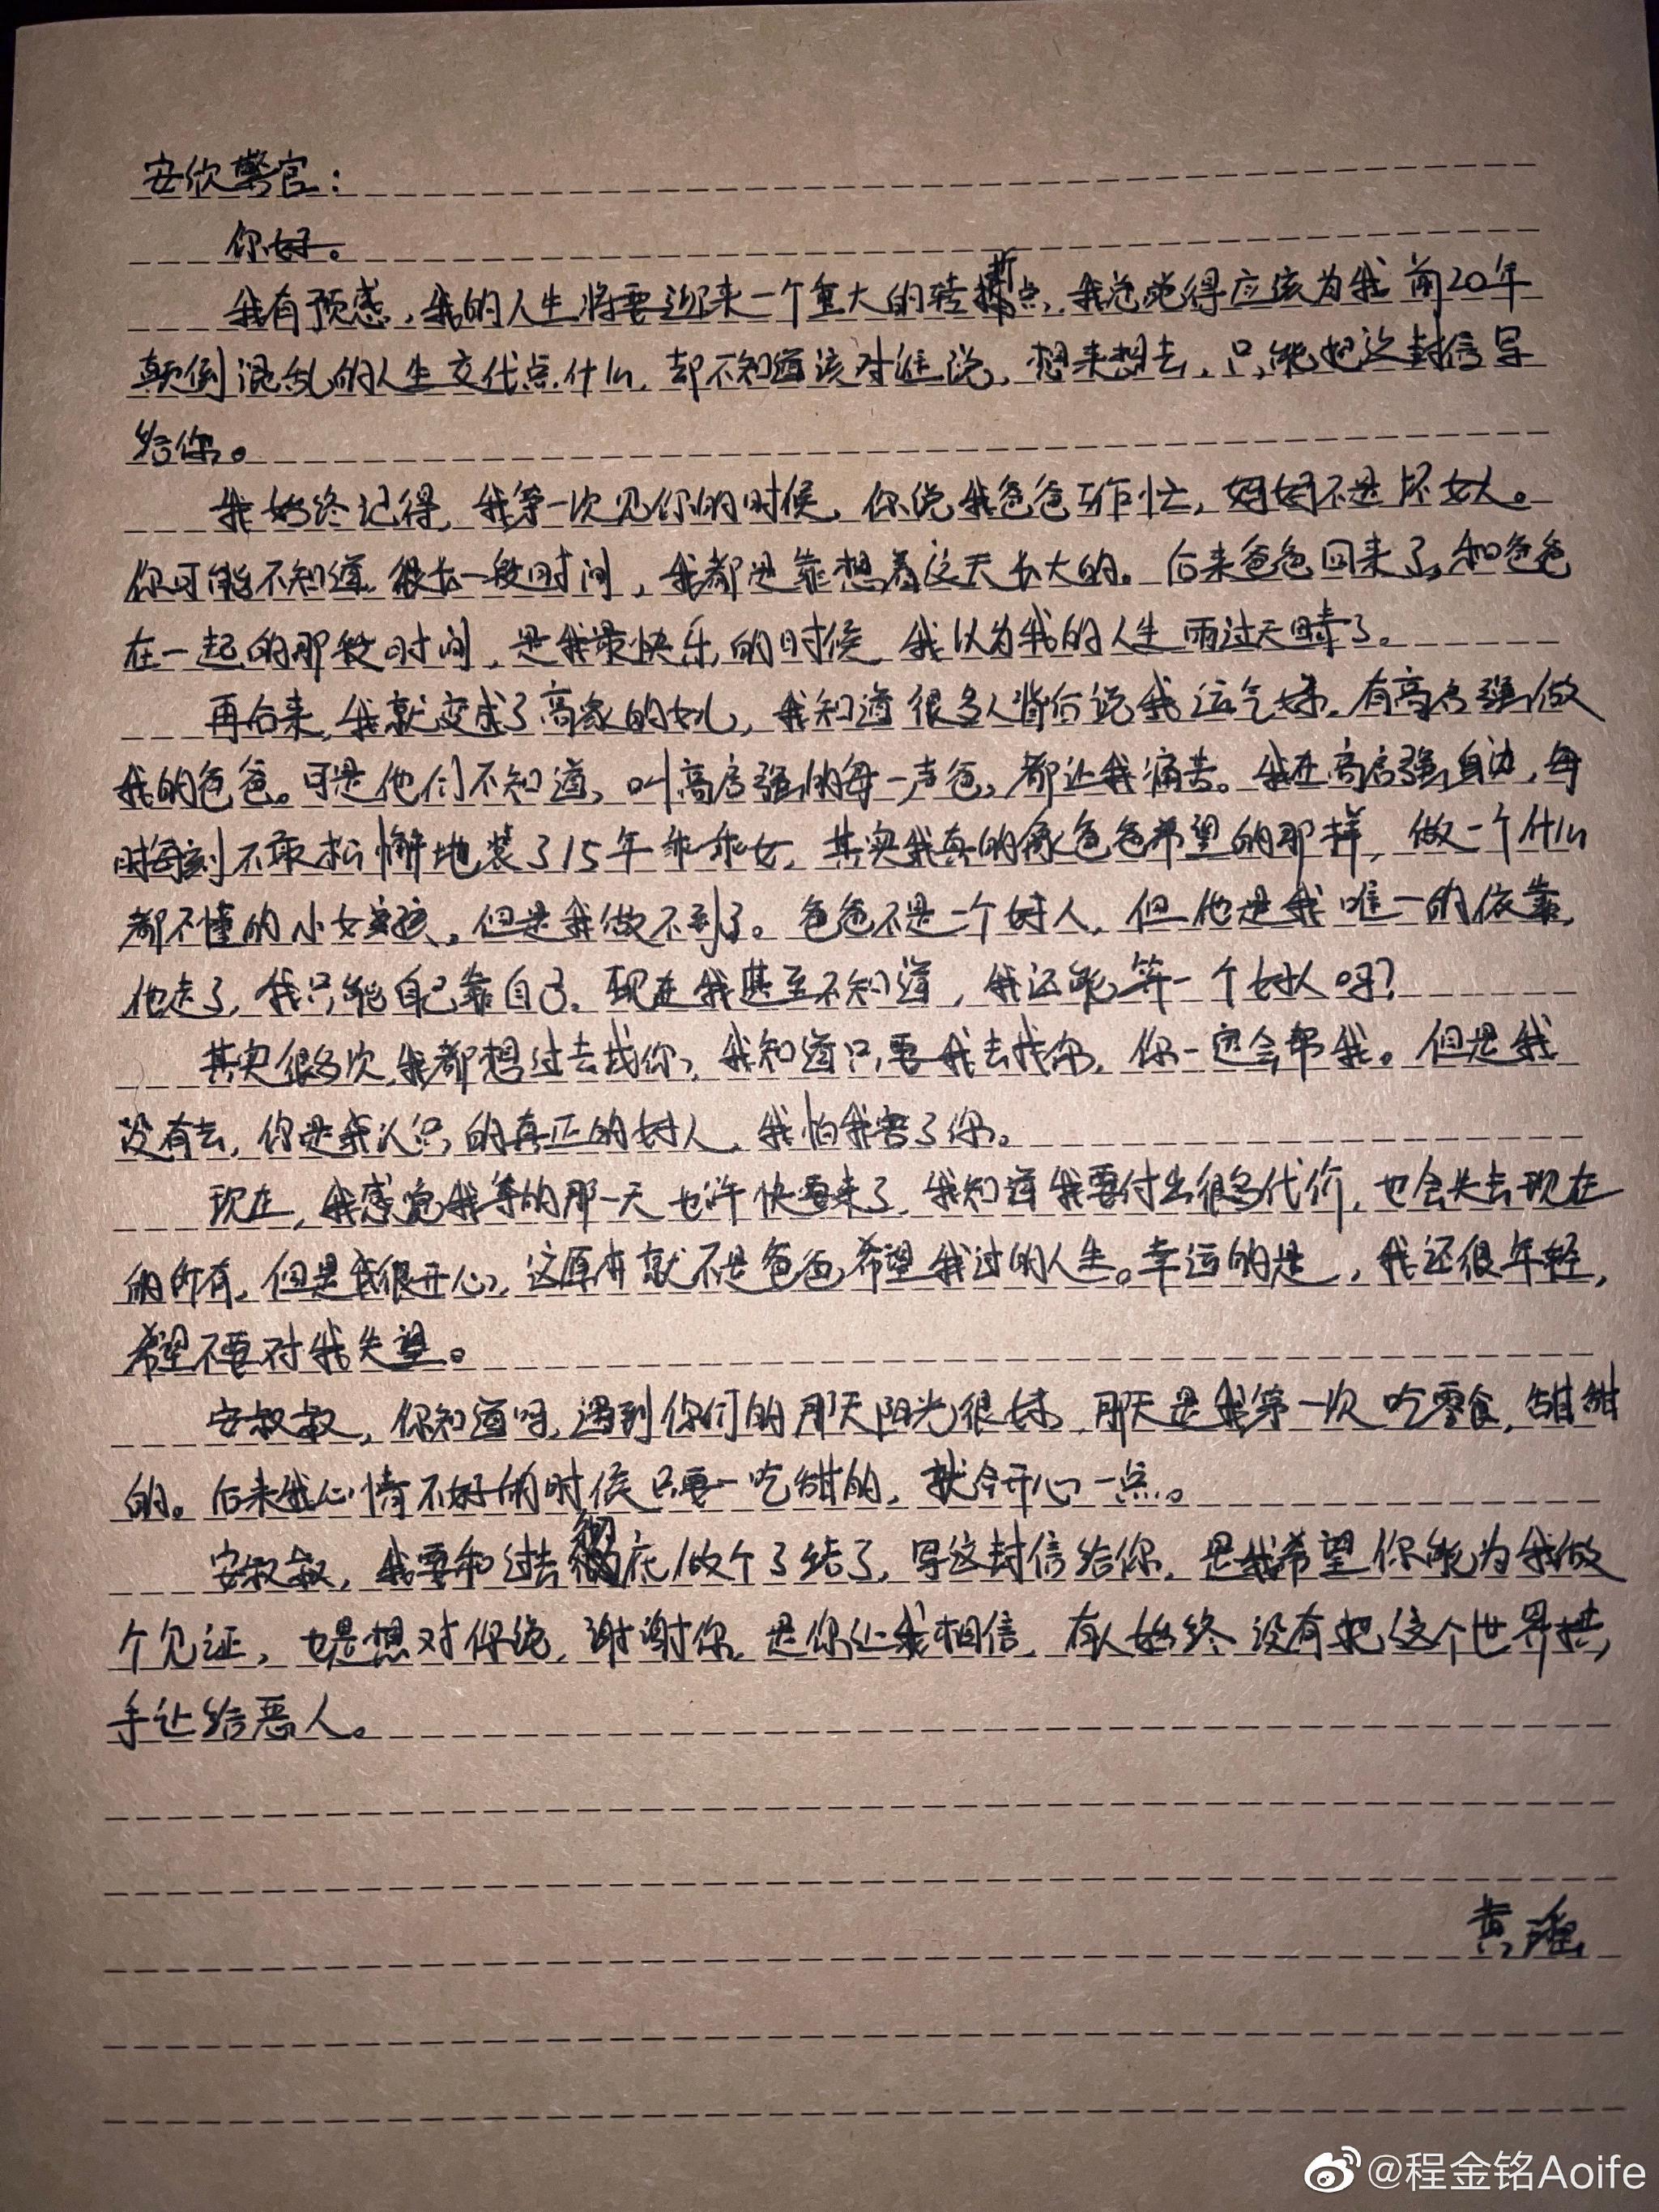 安欣警官：
你好。
我有预感，我的人生将要迎来一个重大的转折点，我总觉得应该为我前20年
颠倒混乱的人生交代点什么，却不知道该对谁说，想来想去，只能把这封信写
给你。
我始终记得，我第一次见你的时候，你说我爸爸工作忙，妈妈不是坏女人。
你可能不知道，很长一段时间，我都是靠想着这天长大的。后来爸爸回来了，和爸爸
在一起的那段时间，是我最快乐的时候，我以为我的人生雨过天晴了。
再后来，我就变成了高家的女儿，我知道很多人背后说我运气好，有高启强做
我的爸爸。可是他们不知道，叫高启强的每一声爸，都让我痛苦。我在高启强身边，每
时每刻不敢松懈地装了15年乖乖女，其实我真的像爸爸希望的那样，做一个什么
都不懂的小女孩，但是我做不到了。爸爸不是一个好人，但他是我唯一的依靠，
他走了，我只能自己靠自己。现在我甚至不知道，我还能算一个好人吗？
其实很多次，我都想过去找你，我知道只要我去找你，你一定会帮我。但是我
没有去，你是我认识的真正的好人，我怕我害了你。
现在，我感觉我等的那一天也许快要来了，我知道我要付出很多代价，也会失去现在
的所有，但是我很开心，这原本就不是爸爸希望我过的人生。幸运的是，我还很年轻，
希望不要对我失望。
安叔叔，你知道吗，遇到你们的那天阳光很好，那天是我第一次吃零食，甜甜
的。后来我心情不好的时候只要一吃甜的，就会开心一点。
安叔叔，我要和过去彻底做个了结了，写这封信给你，是我希望你能为我做
个见证，也是想对你说，谢谢你，是你让我相信，有人始终没有把这个世界拱
手让给恶人。
黄瑶
@程金铭Aoife